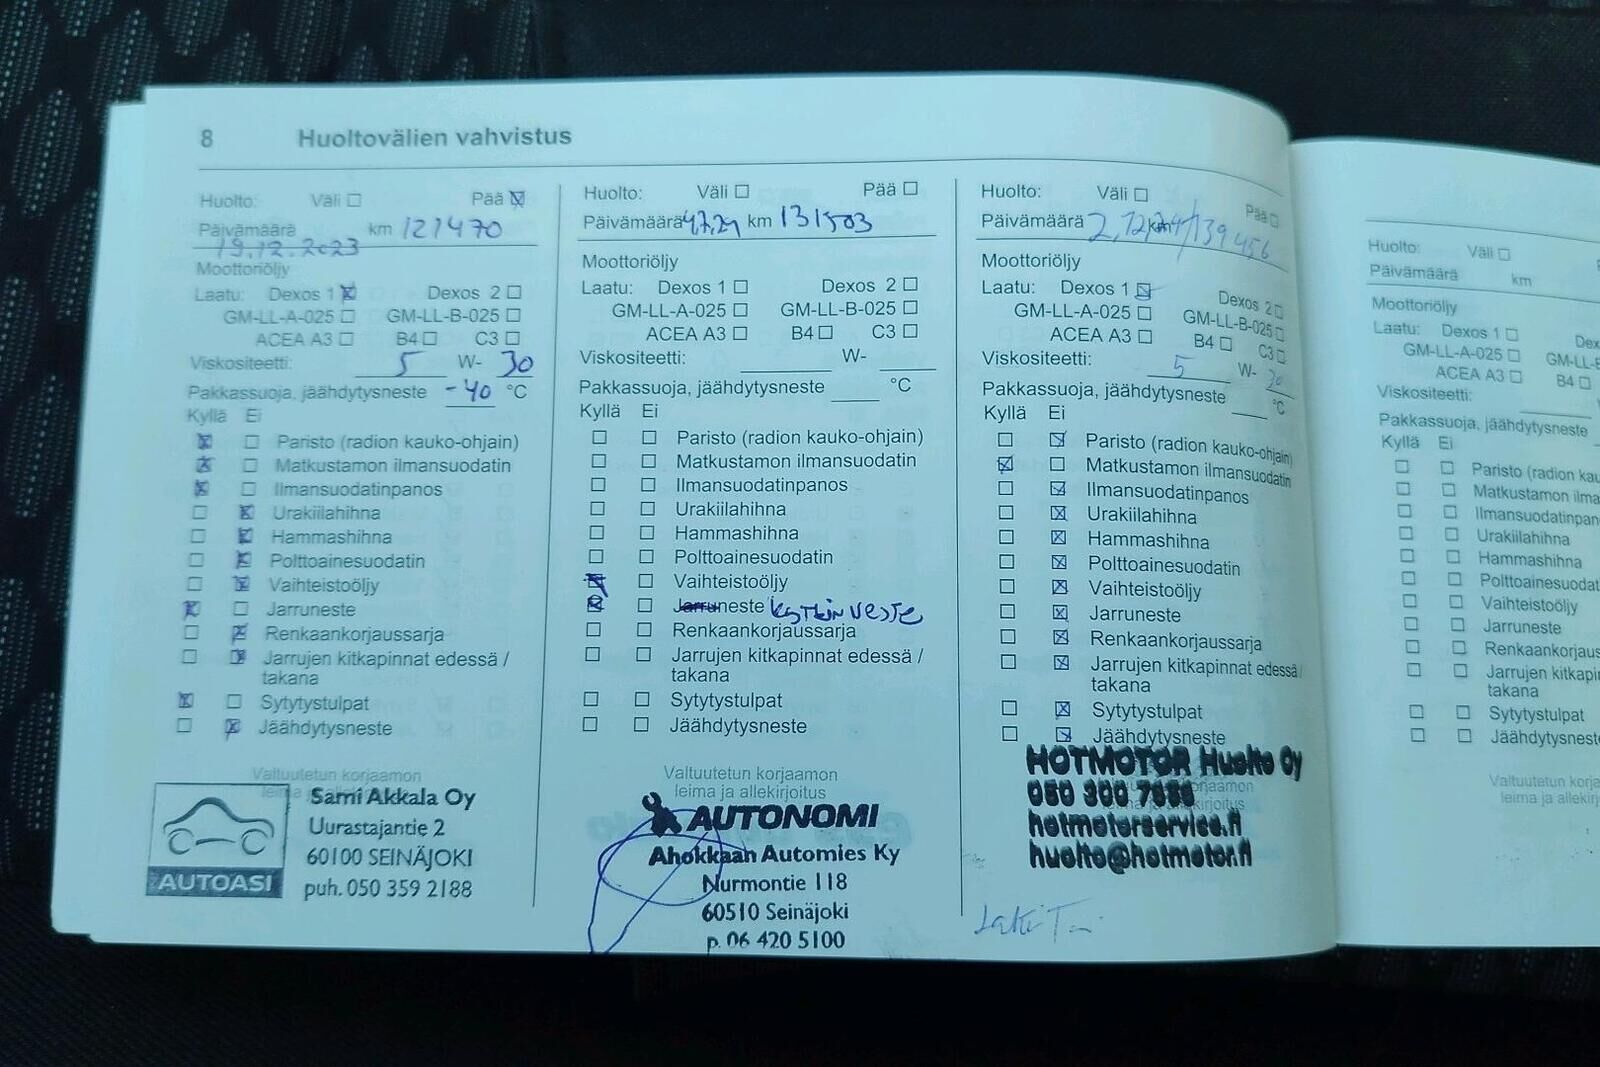 8 Huoltovälien vahvistus
Huolto: Väli ☐ Pää ☒
Päivämäärä km 121470
19.12.2023
Moottoriöljy
Laatu: Dexos 1 ☒ Dexos 2 ☐
GM-LL-A-025 ☐ GM-LL-B-025 ☐
ACEA A3 ☐ B4 ☐ C3 ☐
Viskositeetti: 5 W- 30
Pakkassuoja, jäähdytysneste -40 °C
Kyllä Ei
☒ ☐ Paristo (radion kauko-ohjain)
☒ ☐ Matkustamon ilmansuodatin
☒ ☐ Ilmansuodatinpanos
☐ ☒ Urakiilahihna
☐ ☒ Hammashihna
☐ ☒ Polttoainesuodatin
☐ ☒ Vaihteistoöljy
☒ ☐ Jarruneste
☐ ☒ Renkaankorjaussarja
☐ ☒ Jarrujen kitkapinnat edessä /
takana
☒ ☐ Sytytystulpat
☐ ☒ Jäähdytysneste
Valtuutetun korjaamon
leima ja allekirjoitus
AUTOASI
Sami Akkala Oy
Uurastajantie 2
60100 SEINÄJOKI
puh. 050 359 2188
Huolto: Väli ☐ Pää ☐
Päivämäärä km 131503
Moottoriöljy
Laatu: Dexos 1 ☐ Dexos 2 ☐
GM-LL-A-025 ☐ GM-LL-B-025 ☐
ACEA A3 ☐ B4 ☐ C3 ☐
Viskositeetti: W-
Pakkassuoja, jäähdytysneste °C
Kyllä Ei
☐ ☐ Paristo (radion kauko-ohjain)
☐ ☐ Matkustamon ilmansuodatin
☐ ☐ Ilmansuodatinpanos
☐ ☐ Urakiilahihna
☐ ☐ Hammashihna
☐ ☐ Polttoainesuodatin
☒ ☐ Vaihteistoöljy
☒ ☐ Jarruneste kytkinneste
☐ ☐ Renkaankorjaussarja
☐ ☐ Jarrujen kitkapinnat edessä /
takana
☐ ☐ Sytytystulpat
☐ ☐ Jäähdytysneste
Valtuutetun korjaamon
leima ja allekirjoitus
AUTONOMI
Ahokkaan Automies Ky
Nurmontie 118
60510 Seinäjoki
p. 06 420 5100
Huolto: Väli ☐ Pää ☐
Päivämäärä 2.12.24 km 139456
Moottoriöljy
Laatu: Dexos 1 ☒ Dexos 2 ☐
GM-LL-A-025 ☐ GM-LL-B-025 ☐
ACEA A3 ☐ B4 ☐ C3 ☐
Viskositeetti: 5 W- 30
Pakkassuoja, jäähdytysneste °C
Kyllä Ei
☐ ☒ Paristo (radion kauko-ohjain)
☒ ☐ Matkustamon ilmansuodatin
☐ ☒ Ilmansuodatinpanos
☐ ☒ Urakiilahihna
☐ ☒ Hammashihna
☐ ☒ Polttoainesuodatin
☐ ☒ Vaihteistoöljy
☐ ☒ Jarruneste
☐ ☒ Renkaankorjaussarja
☐ ☒ Jarrujen kitkapinnat edessä /
takana
☐ ☒ Sytytystulpat
☐ ☒ Jäähdytysneste
korjaamon
ja allekirjoitus
HOTMOTOR Huolto Oy
050 300
hotmotorservice.fi
huolto@hotmotor.fi
Huolto: Väli ☐
Päivämäärä km
Moottoriöljy
Laatu: Dexos 1 ☐ Dex
GM-LL-A-025 ☐ GM-LL-B
ACEA A3 ☐ B4 ☐
Viskositeetti:
Pakkassuoja, jäähdytysneste
Kyllä Ei
☐ ☐ Paristo (radion kau
☐ ☐ Matkustamon ilma
☐ ☐ Ilmansuodatinpan
☐ ☐ Urakiilahihna
☐ ☐ Hammashihna
☐ ☐ Polttoainesuodat
☐ ☐ Vaihteistoöljy
☐ ☐ Jarruneste
☐ ☐ Renkaankorjaus
☐ ☐ Jarrujen kitkapin
takana
☐ ☐ Sytytystulpat
☐ ☐ Jäähdytysneste
Valtuutetun korja
leima ja allekirjo